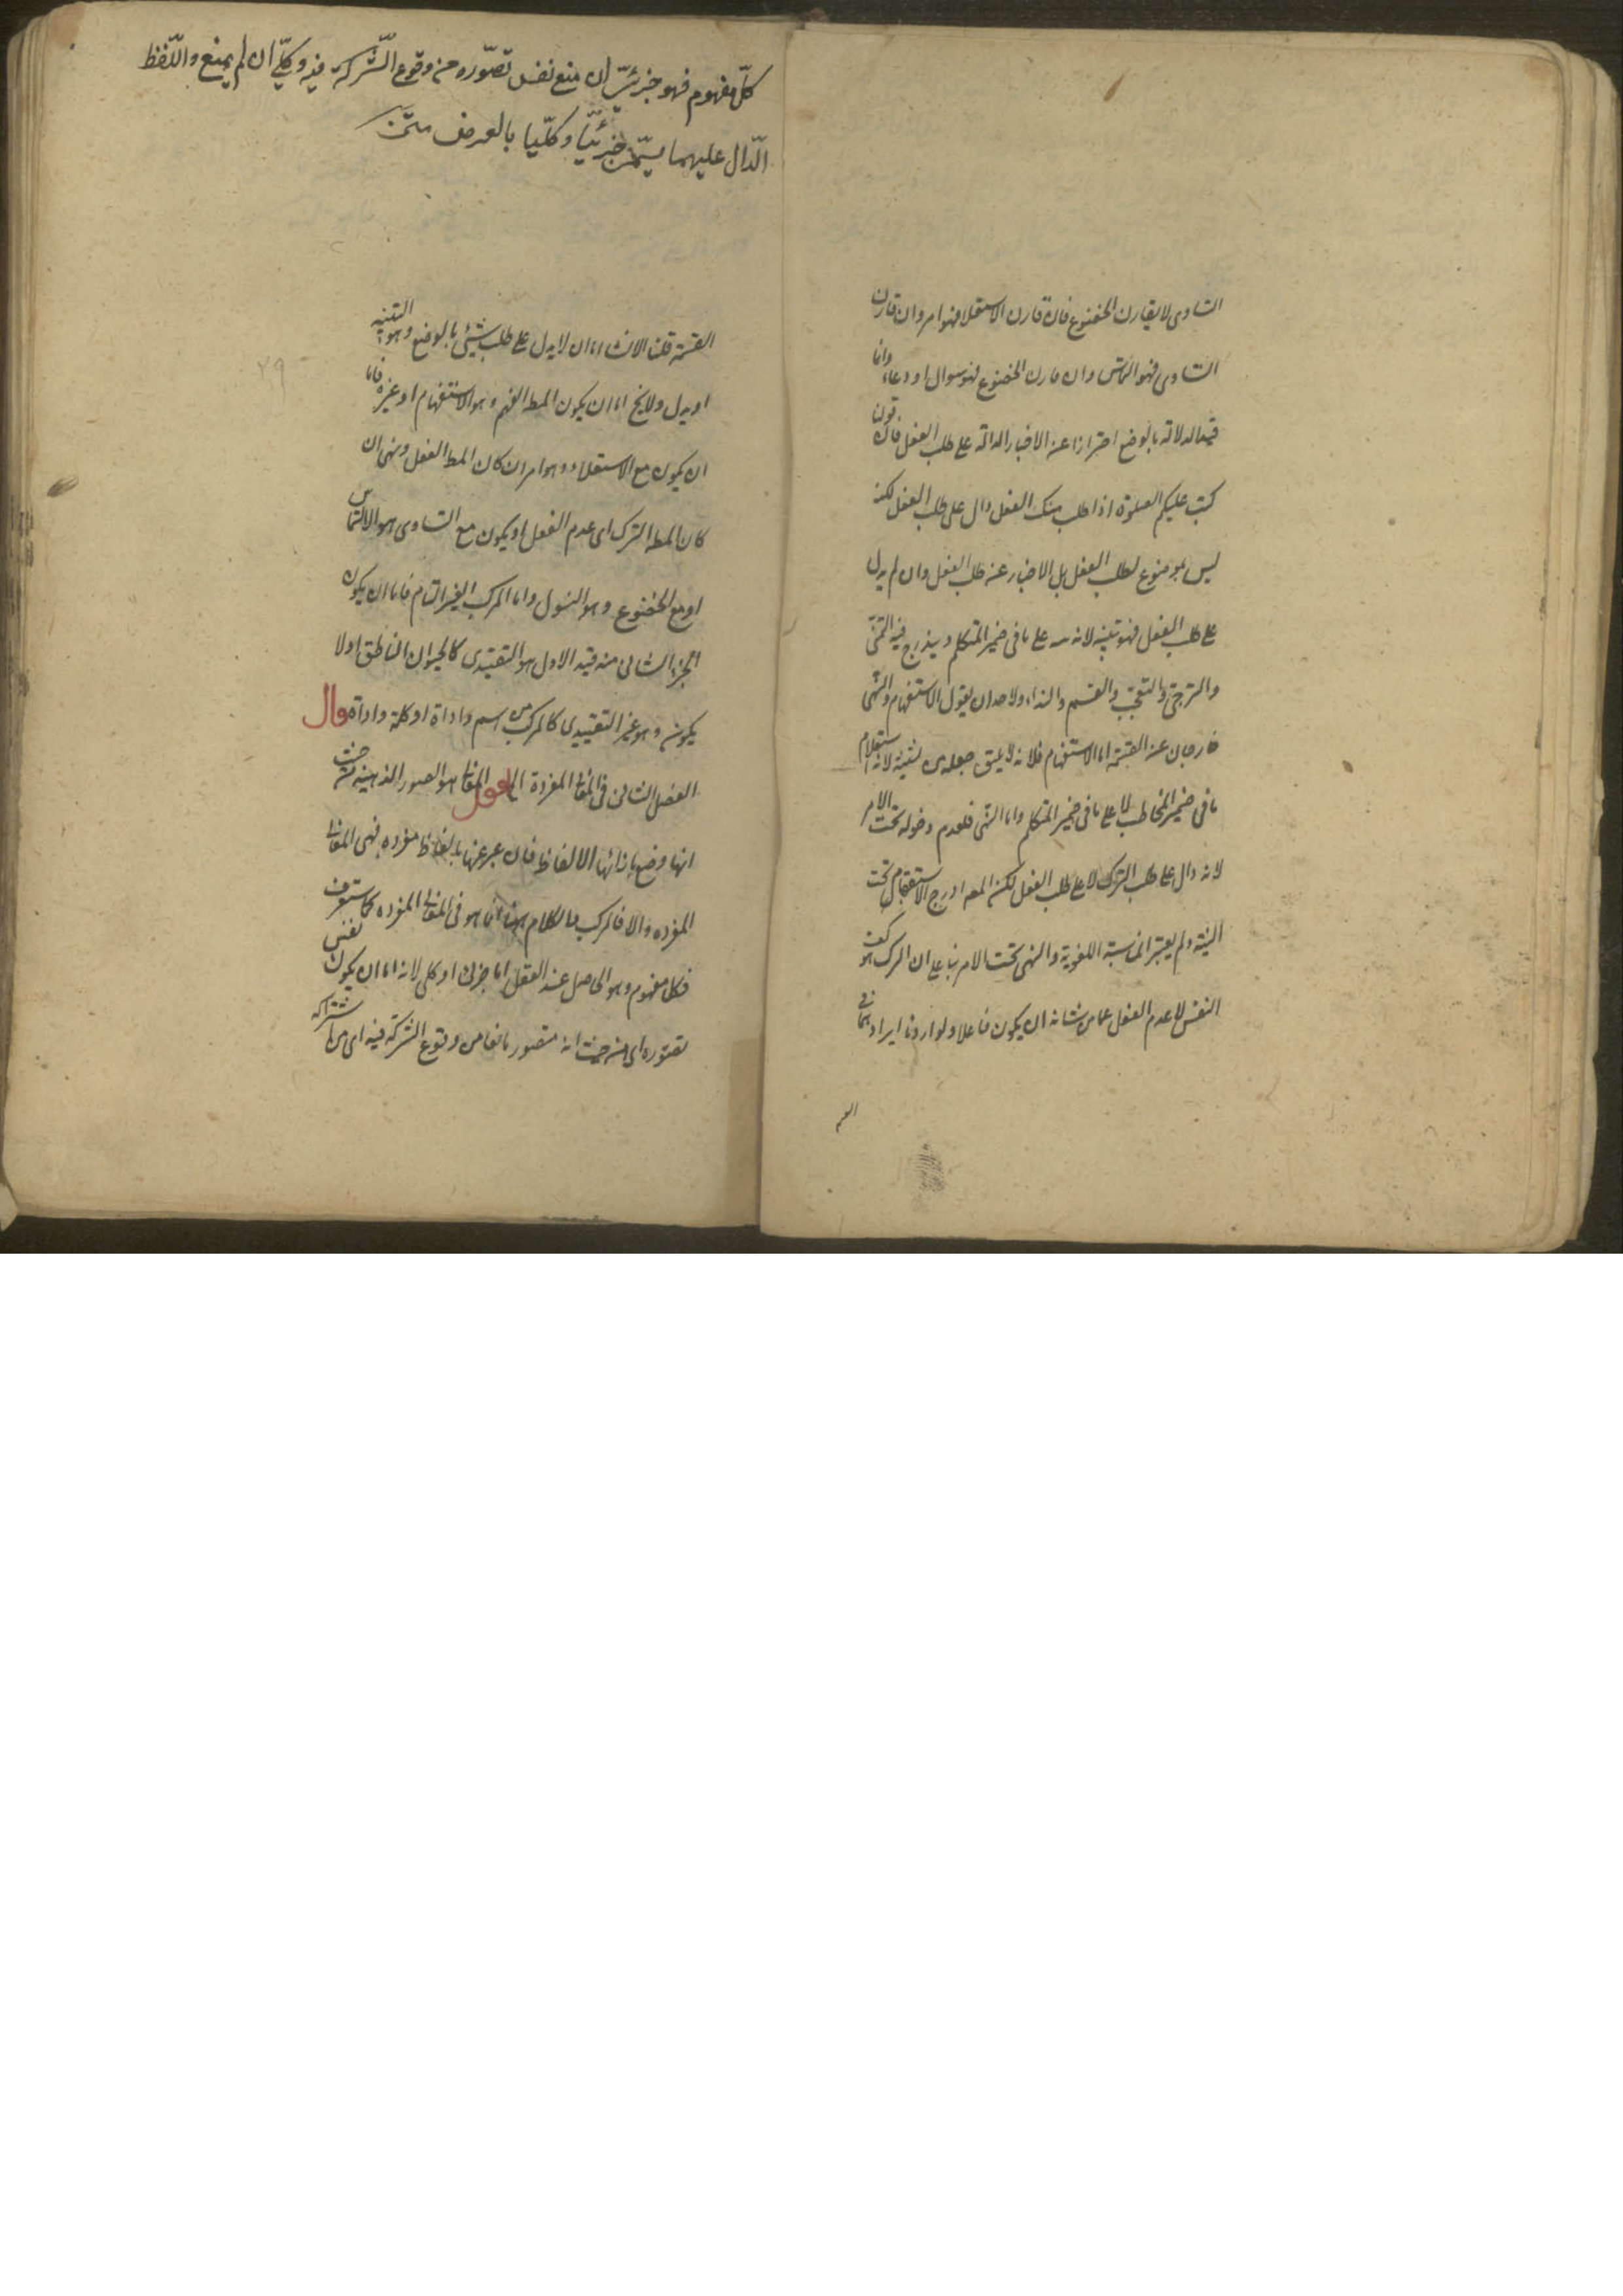 التساوى لا يقارن الخضوع فان قارن الاستعلا فهو امر وان قارن
التساوى فهو التماس وان قارن الخضوع فهو سوال او دعاء وانما
قيد الدلالة بالوضع احترازا عن الاخبار الدالة على طلب الفعل فان قولنا
كتب عليكم الصلوة اذا طلب منك الفعل دال على طلب الفعل لكنه
ليس بموضوع لطلب الفعل بل الاخبار عن طلب الفعل وان لم يدل
على طلب الفعل فهو تنبيه لانه على ما فى ضمير المتكلم ويندرج فيه التمنى
والترجى والتعجب والقسم والنداء ولاحد ان يقول الاستفهام والنهى
خارجان عن القسمة اما الاستفهام فلانه لا يليق جعله من تنبيه لانه استعلام
ما فى ضمير المخاطب لا على ما فى ضمير المتكلم واما النهى فلعدم دخوله تحت الامر
لانه دال على طلب الترك لا على طلب الفعل لكن المصه ادرج الاستفهام تحت
التنبيه ولم يعتبر المناسبة اللغوية والنهى تحت الامر بنا على ان الترك هو كف
النفس لا عدم الفعل عما من شانه ان يكون فاعلا ولو اردنا ايرادهما فى
القسم
كلّ مفهوم فهو جزئىّ ان منع نفس تصوّره من وقوع الشّركة فيه وكلّى ان لم يمنع واللّفظ
الدّال عليهما يسمّى جزئيّا وكلّيا بالعرض متن
٢٩
القسمة قلنا الانشاء اما ان لا يدل على طلب شيئ بالوضع وهو التنبيه
او يدل ولا يخ اما ان يكون المط الفهم وهو الاستفهام او غيره فاما
ان يكون مع الاستعلاء وهو امر ان كان المط الفعل ونهى ان
كان المط الترك اى عدم الفعل او يكون مع التساوى هو الالتماس
او مع الخضوع وهو السؤل واما المركب الغير التام فاما ان يكون
الجزء الثانى منه قيد الاول هو التقييدى كالحيوان الناطق او لا
يكون وهو غير التقييدى كالمركب من اسم واداة او كلمة واداة قال
الفصل الثانى فى المعانى المفردة اقول المعانى هو الصور الذهنية من حيث
انها وضع بازائها الالفاظ فان عبر عنها بالفاظ مفرده فهى المعانى
المفرده والا فالمركب فالكلام ههنا انما هو فى المعانى المفرده كما ستعرف
فكل مفهوم وهو الحاصل عند العقل اما جزئى او كلى لانه اما ان يكون نفس
تصوره اى من حيث انه متصور مانعا من وقوع الشركة فيه اى من اشتراكه